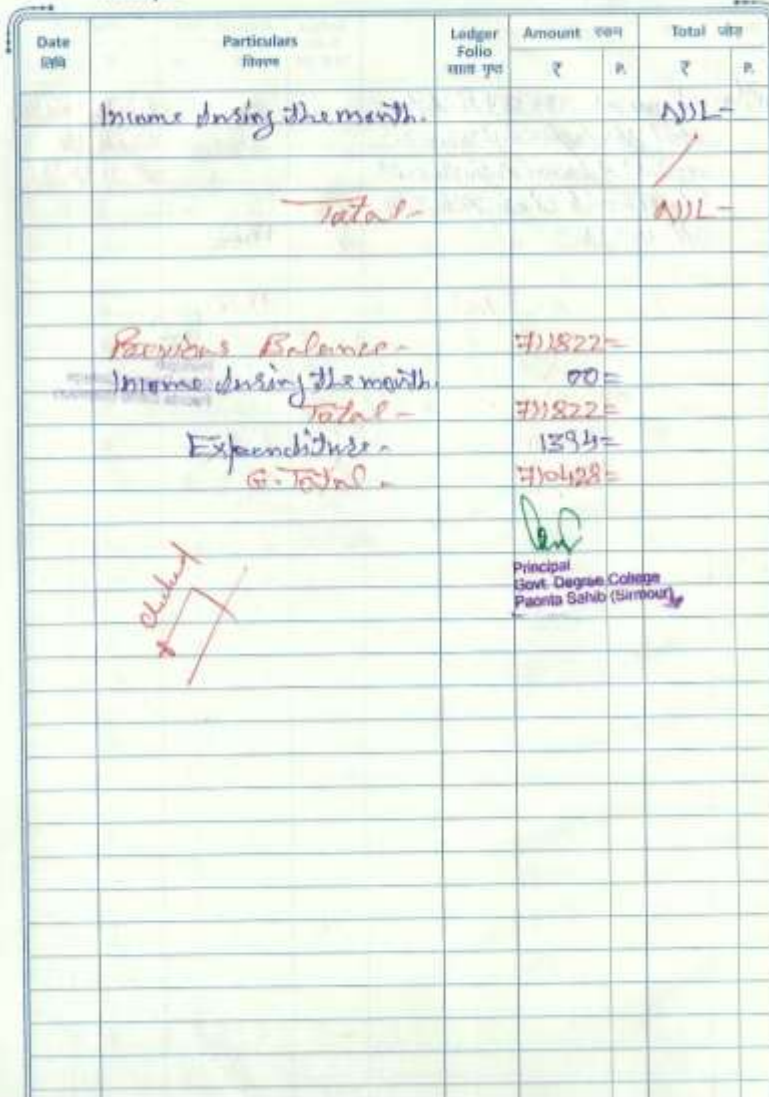 Date Particulars Ledger Folio Amount रकम Total जोड़
तिथि विवरण खाता पृष्ठ ₹ P. ₹ P.
Income during the month. NIL-
Total- NIL-
Previous Balance- 711822=
Income during the month. 00=
Total- 711822=
Expenditure- 1394=
G. Total- 710428=
Checked
Principal
Govt. Degree College
Paonta Sahib (Sirmour)